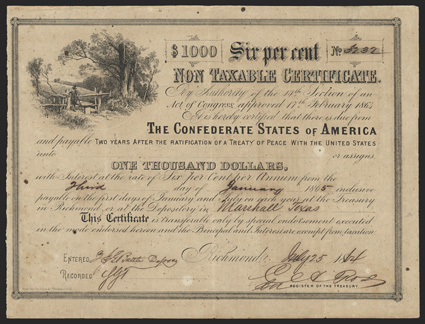 $1000 Six per cent No
NON TAXABLE CERTIFICATE.
By Authority of the 14th Section of an
Act of Congress approved 17th February 1864
It is hereby certified that there is due from
THE CONFEDERATE STATES OF AMERICA
and payable TWO YEARS AFTER THE RATIFICATION OF A TREATY OF PEACE WITH THE UNITED STATES
unto or assigns
ONE THOUSAND DOLLARS,
with Interest at the rate of Six per Cent per Annum from the
third day of January 1865 inclusive
payable on the first days of January and July in each year at the Treasury
in Richmond, or at the Depository in Marshall Texas
This Certificate is transferable only by special endorsement executed
in the mode endorsed hereon and the Principal and Interest are exempt from taxation.
Richmond July 25 1864
ENTERED
RECORDED
REGISTER OF THE TREASURY